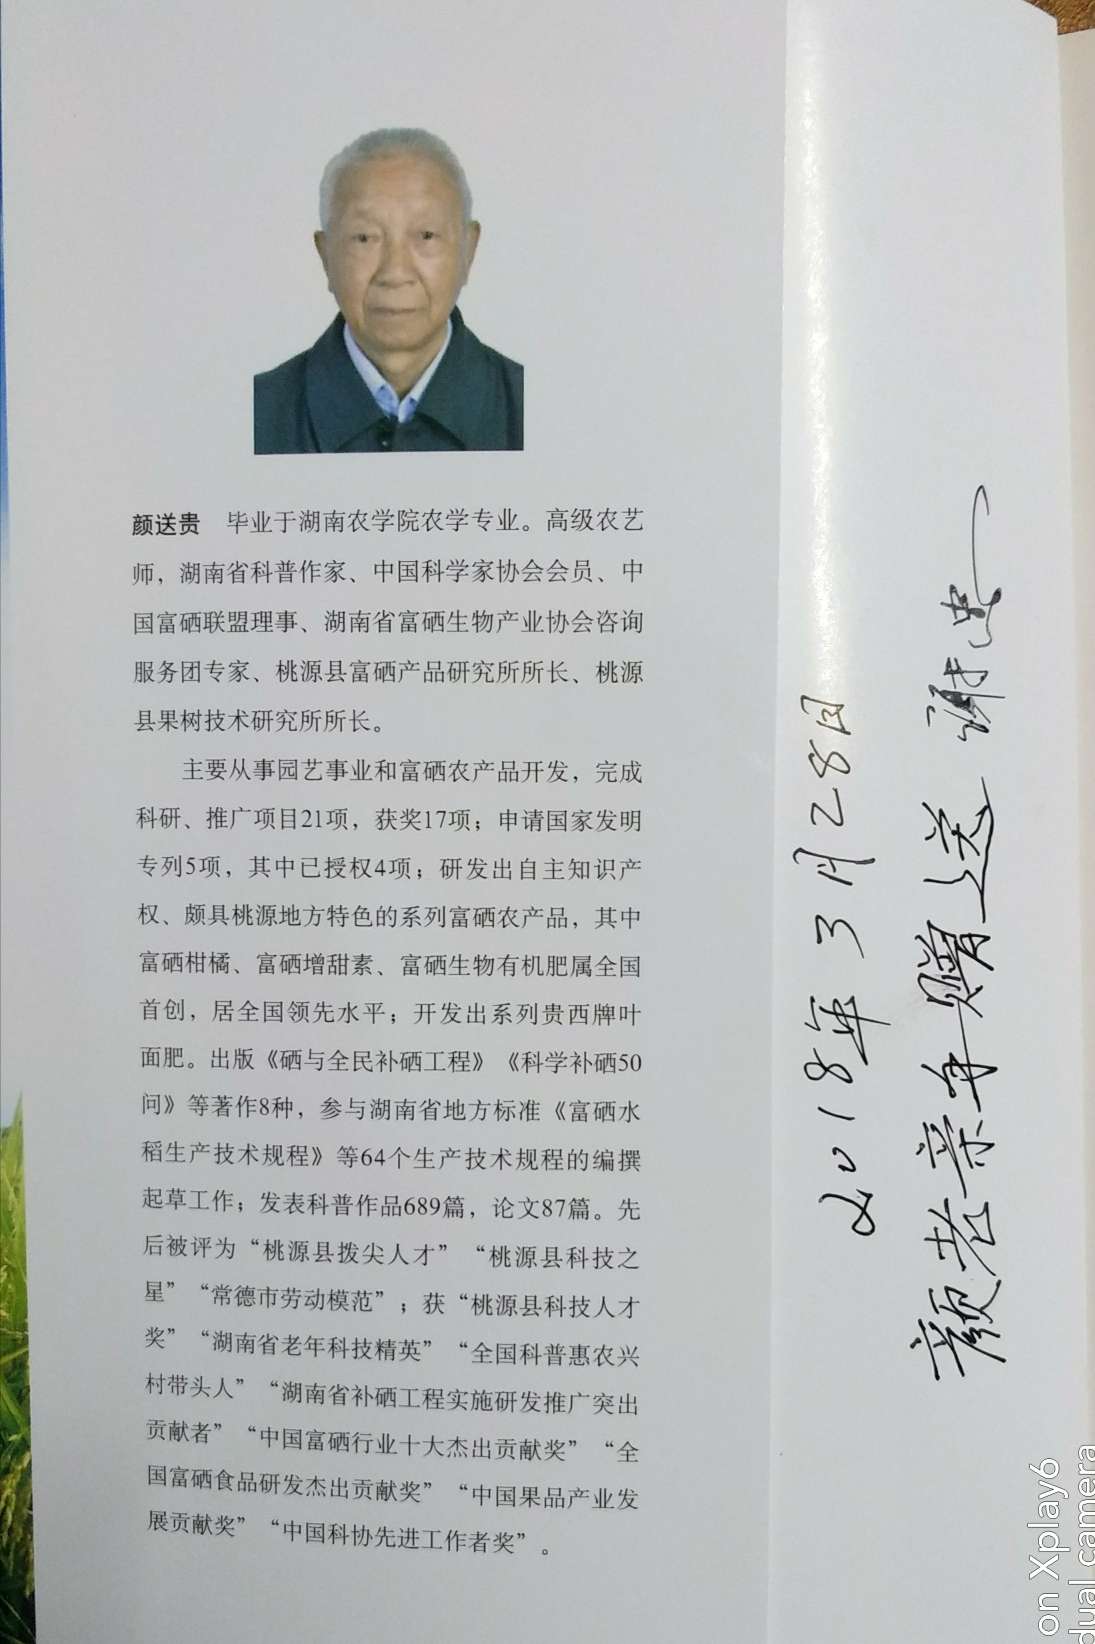 颜送贵 毕业于湖南农学院农学专业。高级农艺
师，湖南省科普作家、中国科学家协会会员、中
国富硒联盟理事、湖南省富硒生物产业协会咨询
服务团专家、桃源县富硒产品研究所所长、桃源
县果树技术研究所所长。
主要从事园艺事业和富硒农产品开发，完成
科研、推广项目21项，获奖17项；申请国家发明
专列5项，其中已授权4项；研发出自主知识产
权、颇具桃源地方特色的系列富硒农产品，其中
富硒柑橘、富硒增甜素、富硒生物有机肥属全国
首创，居全国领先水平；开发出系列贵西牌叶
面肥。出版《硒与全民补硒工程》《科学补硒50
问》等著作8种，参与湖南省地方标准《富硒水
稻生产技术规程》等64个生产技术规程的编撰
起草工作；发表科普作品689篇，论文87篇。先
后被评为“桃源县拨尖人才”“桃源县科技之
星”“常德市劳动模范”；获“桃源县科技人才
奖”“湖南省老年科技精英”“全国科普惠农兴
村带头人”“湖南省补硒工程实施研发推广突出
贡献者”“中国富硒行业十大杰出贡献奖”“全
国富硒食品研发杰出贡献奖”“中国果品产业发
展贡献奖”“中国科协先进工作者奖”。
2018年3月28日
颜老亲自赠送 谢忠
on Xplay6
dual camera